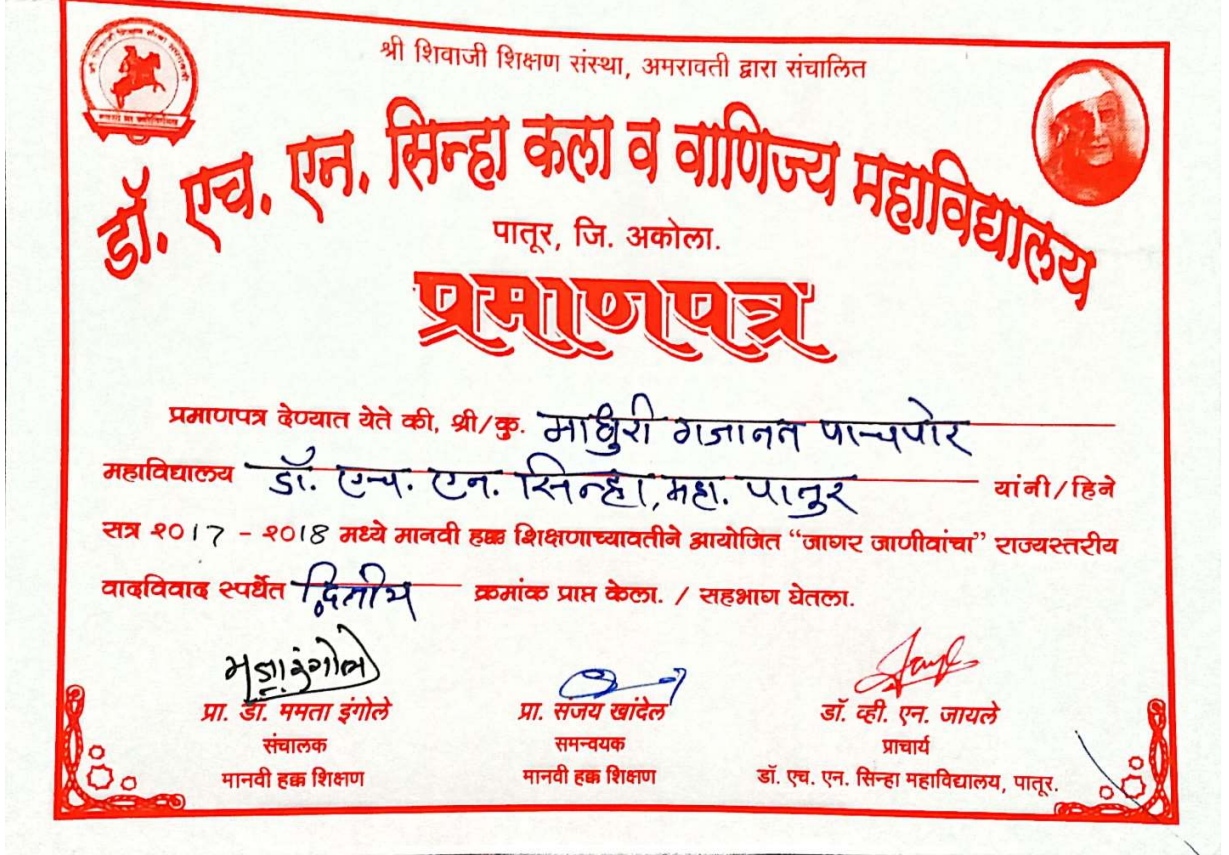 श्री शिवाजी शिक्षण संस्था, अमरावती द्वारा संचालित
डॉ. एच. एन. सिन्हा कला व वाणिज्य महाविद्यालय
पातूर, जि. अकोला.
प्रमाणपत्र
प्रमाणपत्र देण्यात येते की, श्री/कु. माधुरी गजानन पाचपोर
महाविद्यालय डॉ. एच. एन. सिन्हा, महा. पातुर यांनी/हिने
सत्र २०17 - २०18 मध्ये मानवी हक्क शिक्षणाच्यावतीने आयोजित “जागर जाणीवांचा” राज्यस्तरीय
वादविवाद स्पर्धेत द्वितीय क्रमांक प्राप्त केला. / सहभाग घेतला.
प्रा. डॉ. ममता इंगोले प्रा. संजय खांदेल डॉ. व्ही. एन. जायले
संचालक समन्वयक प्राचार्य
मानवी हक्क शिक्षण मानवी हक्क शिक्षण डॉ. एच. एन. सिन्हा महाविद्यालय, पातूर.